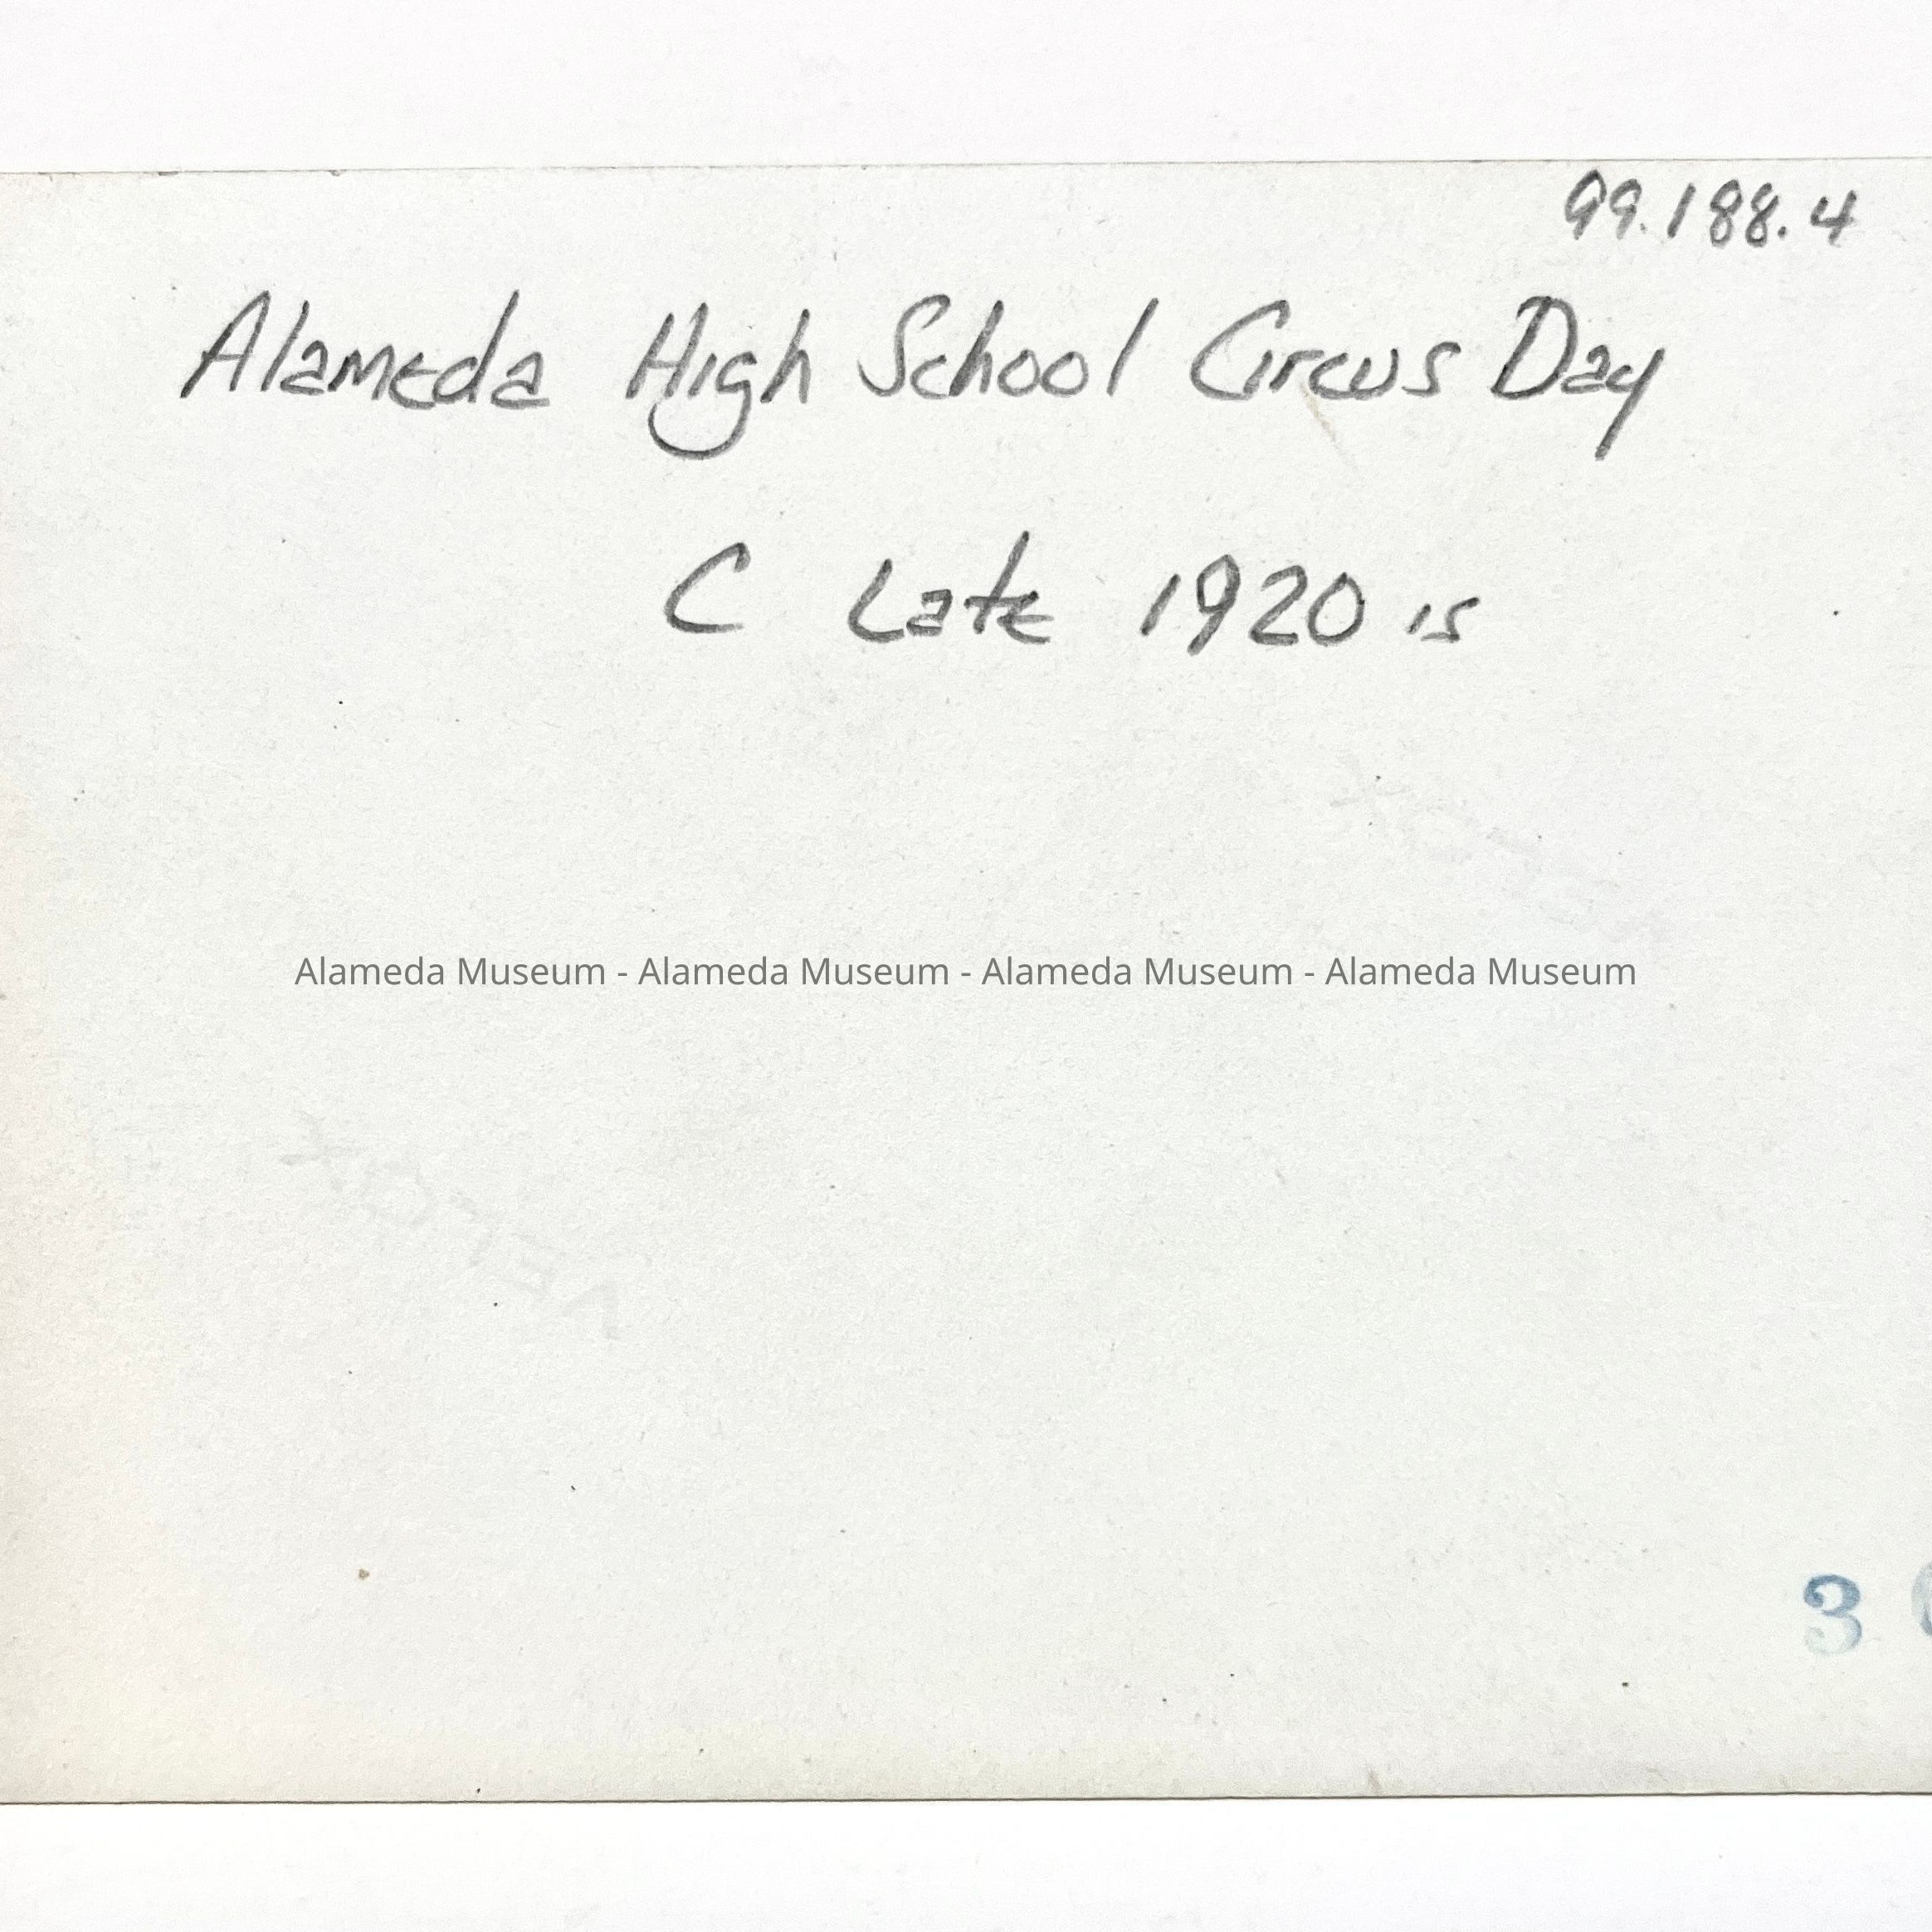 99.188.4
Alameda High School Circus Day
C Late 1920's
Alameda Museum - Alameda Museum - Alameda Museum - Alameda Museum
VELOX
3